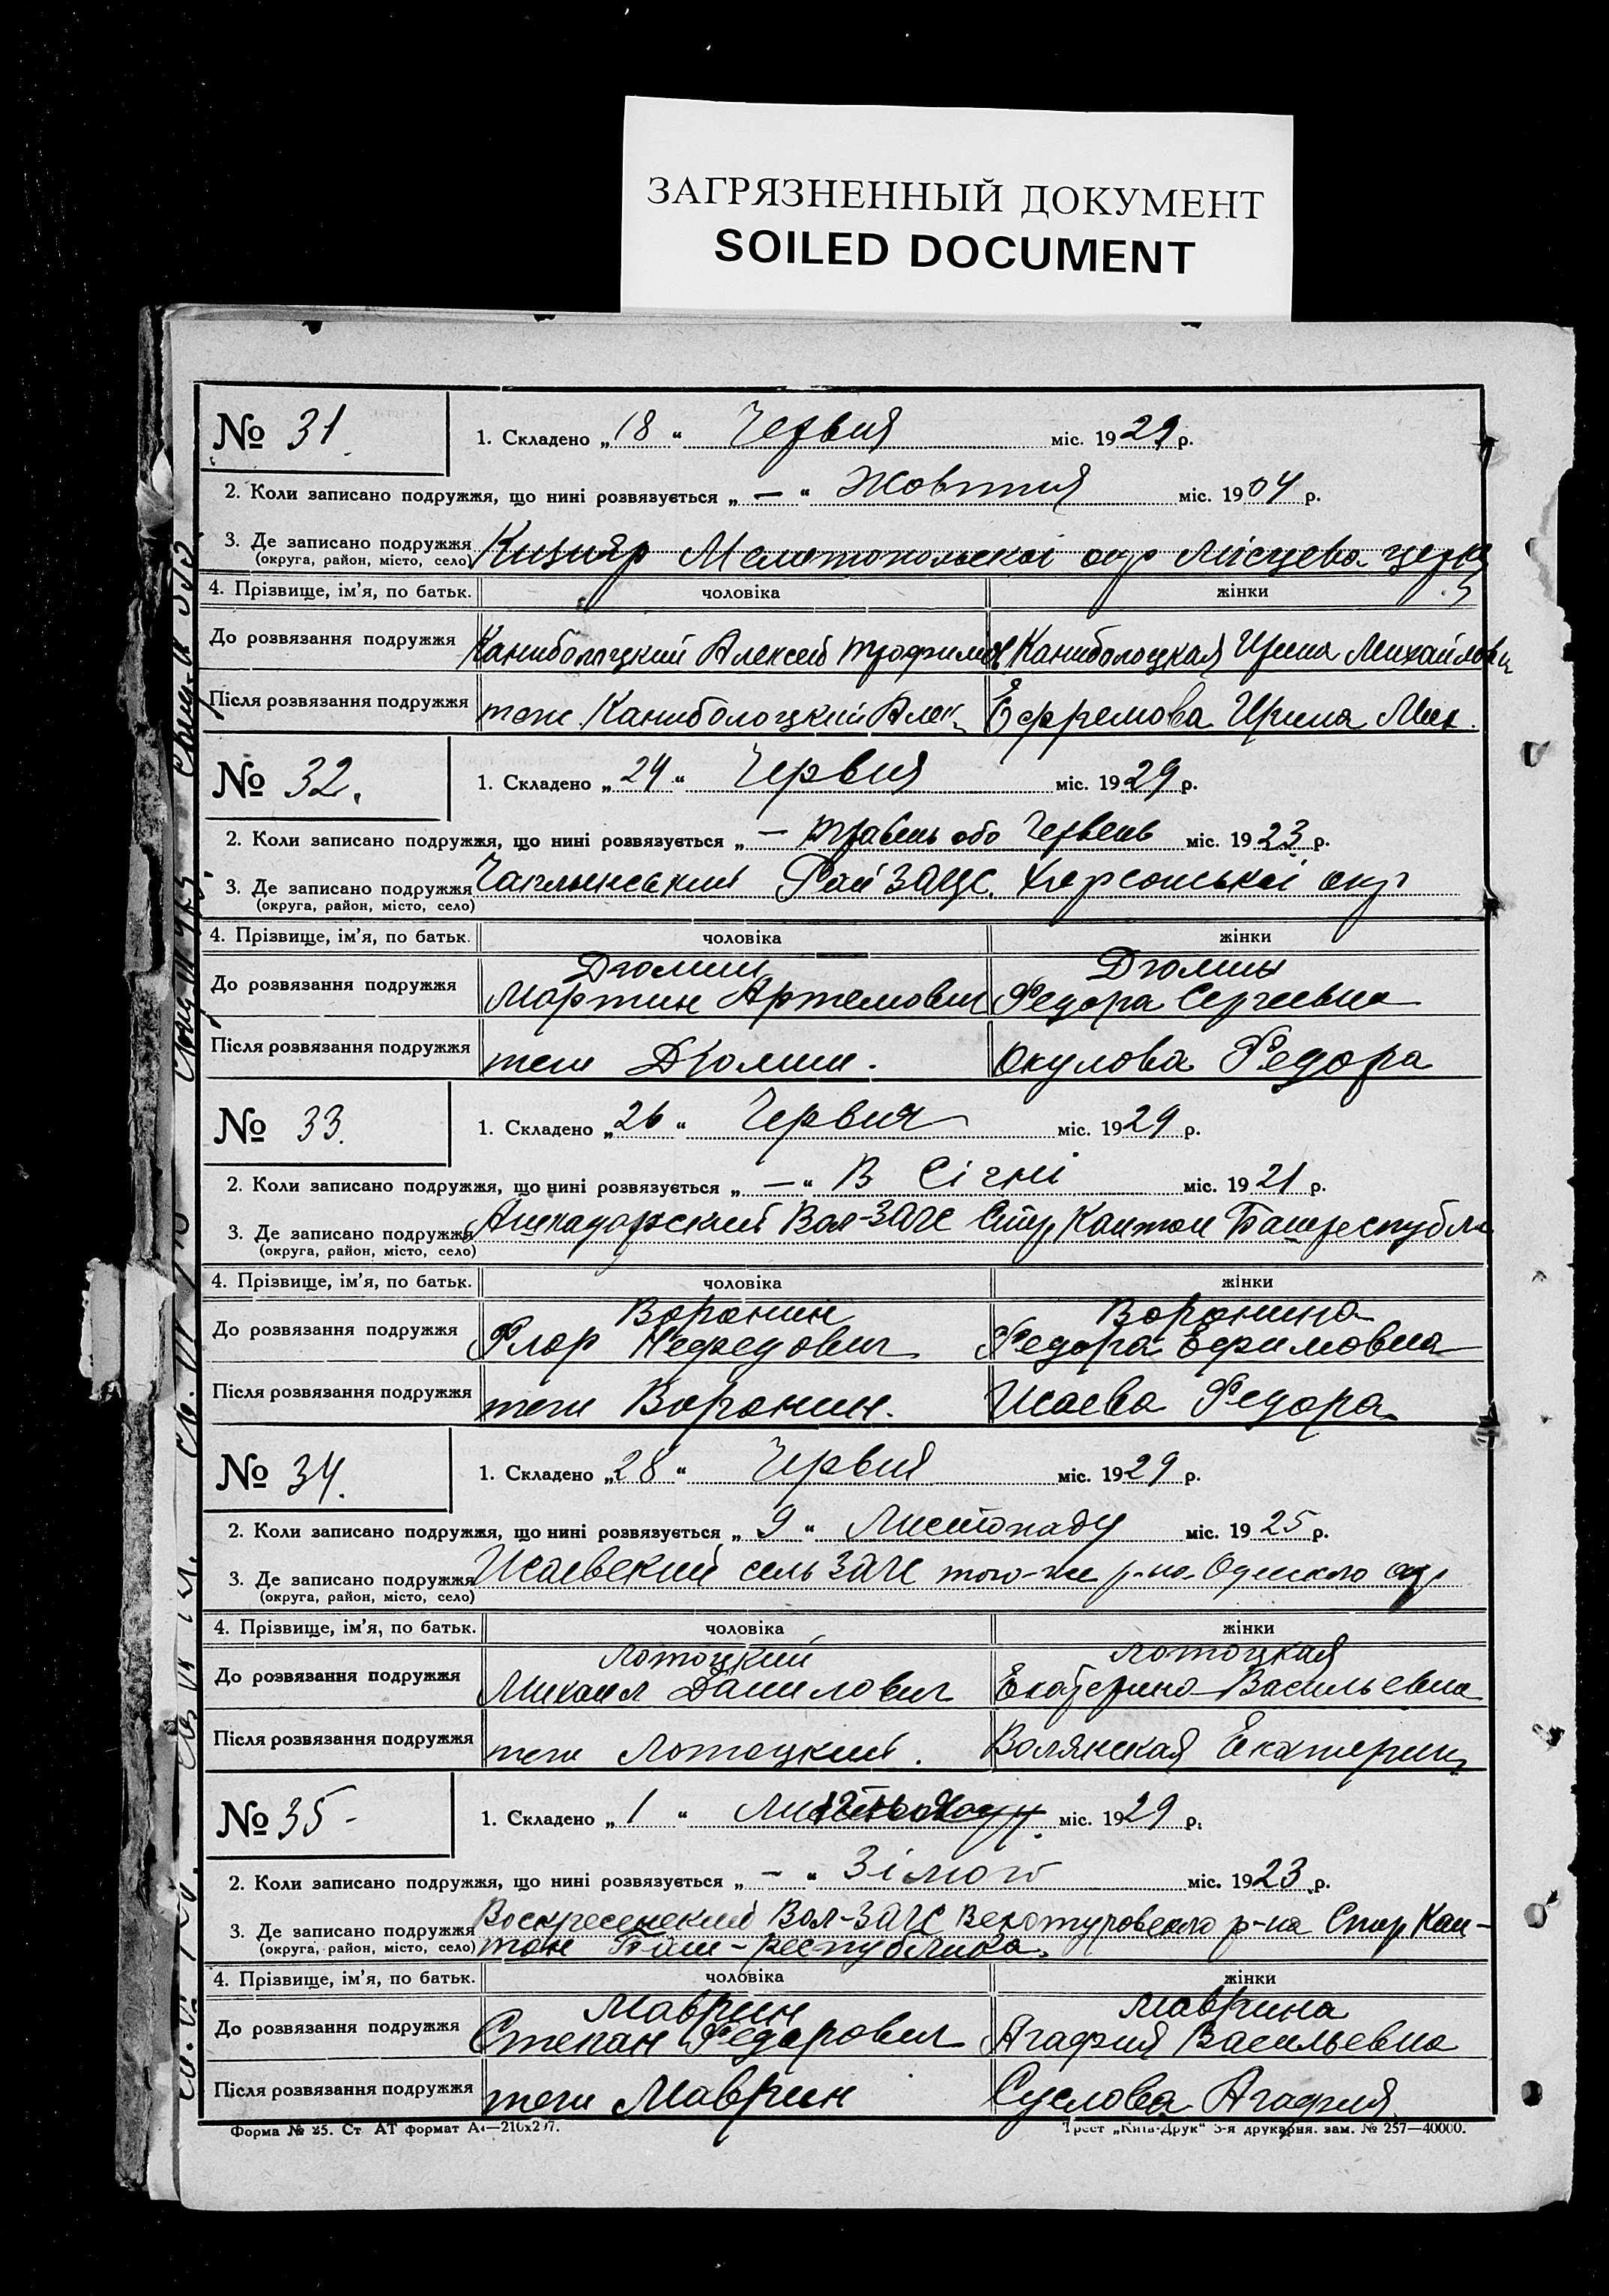 ЗАГРЯЗНЕННЫЙ ДОКУМЕНТ
SOILED DOCUMENT
№ 31
1. Складено „18“ Червня міс. 1929 р.
2. Коли записано подружжя, що нині розвязується „—“ Жовтня міс. 1904 р.
3. Де записано подружжя Кизияр Мелитопольскоі окр місцева церкв
(округа, район, місто, село)
4. Прізвище, ім'я, по батьк. чоловіка жінки
До розвязання подружжя Каниболоцкий Алексей Трофимов Каниболоцкая Ирина Михайловн
Після розвязання подружжя теж Каниболоцкий Алек. Ефремова Ирина Мих.
№ 32.
1. Складено „24“ Червня міс. 1929 р.
2. Коли записано подружжя, що нині розвязується „— Травень або Червень міс. 1923 р.
3. Де записано подружжя Чаплинський Рай ЗАЦС. Херсонськоі окр
(округа, район, місто, село)
4. Прізвище, ім'я, по батьк. чоловіка жінки
Дюмин Дюмины
До розвязання подружжя Мартин Артемович Федора Сергеевна
Після розвязання подружжя теж Дюмин. Окулова Федора
№ 33.
1. Складено „26“ Червня міс. 1929 р.
2. Коли записано подружжя, що нині розвязується „—“ В Січні міс. 1921 р.
3. Де записано подружжя Ашкадарский Вол-ЗАГС Стер Кантон Башреспубли
(округа, район, місто, село)
4. Прізвище, ім'я, по батьк. чоловіка жінки
Воронин Воронина
До розвязання подружжя Флор Нефедович Федора Ефимовна
Після розвязання подружжя теж Воронин. Исаева Федора
№ 34.
1. Складено „28“ Червня міс. 1929 р.
2. Коли записано подружжя, що нині розвязується „9“ Листопаду міс. 1925 р.
3. Де записано подружжя Исаевский сель ЗАГС того-же р-на Одеского окр
(округа, район, місто, село)
4. Прізвище, ім'я, по батьк. чоловіка жінки
Лотоцкий Лотоцкая
До розвязання подружжя Михаил Данилович Екатерина Васильевна
Після розвязання подружжя теж Лотоцкий. Волянская Екатерин
№ 35-
1. Складено „1“ міс. 1929 р.
2. Коли записано подружжя, що нині розвязується „—“ Зімою міс. 1923 р.
3. Де записано подружжя Воскресенский Вол-ЗАГС Верхотуровского р-на Стер Кан-
(округа, район, місто, село) тон Баш-республика.
4. Прізвище, ім'я, по батьк. чоловіка жінки
Маврин Маврина
До розвязання подружжя Степан Федорович Агафия Васильевна
Після розвязання подружжя теж Маврин Суслова Агафия
Форма № 25. Ст АТ формат А4—210х297. Трест „Київ-Друк“ 3-я друкарня. зам. № 257—40000.